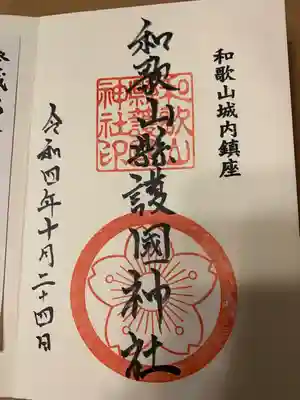 和歌山城内鎮座
和歌山縣護國神社
和歌山
縣護國
神社印
令和四年十月二十四日